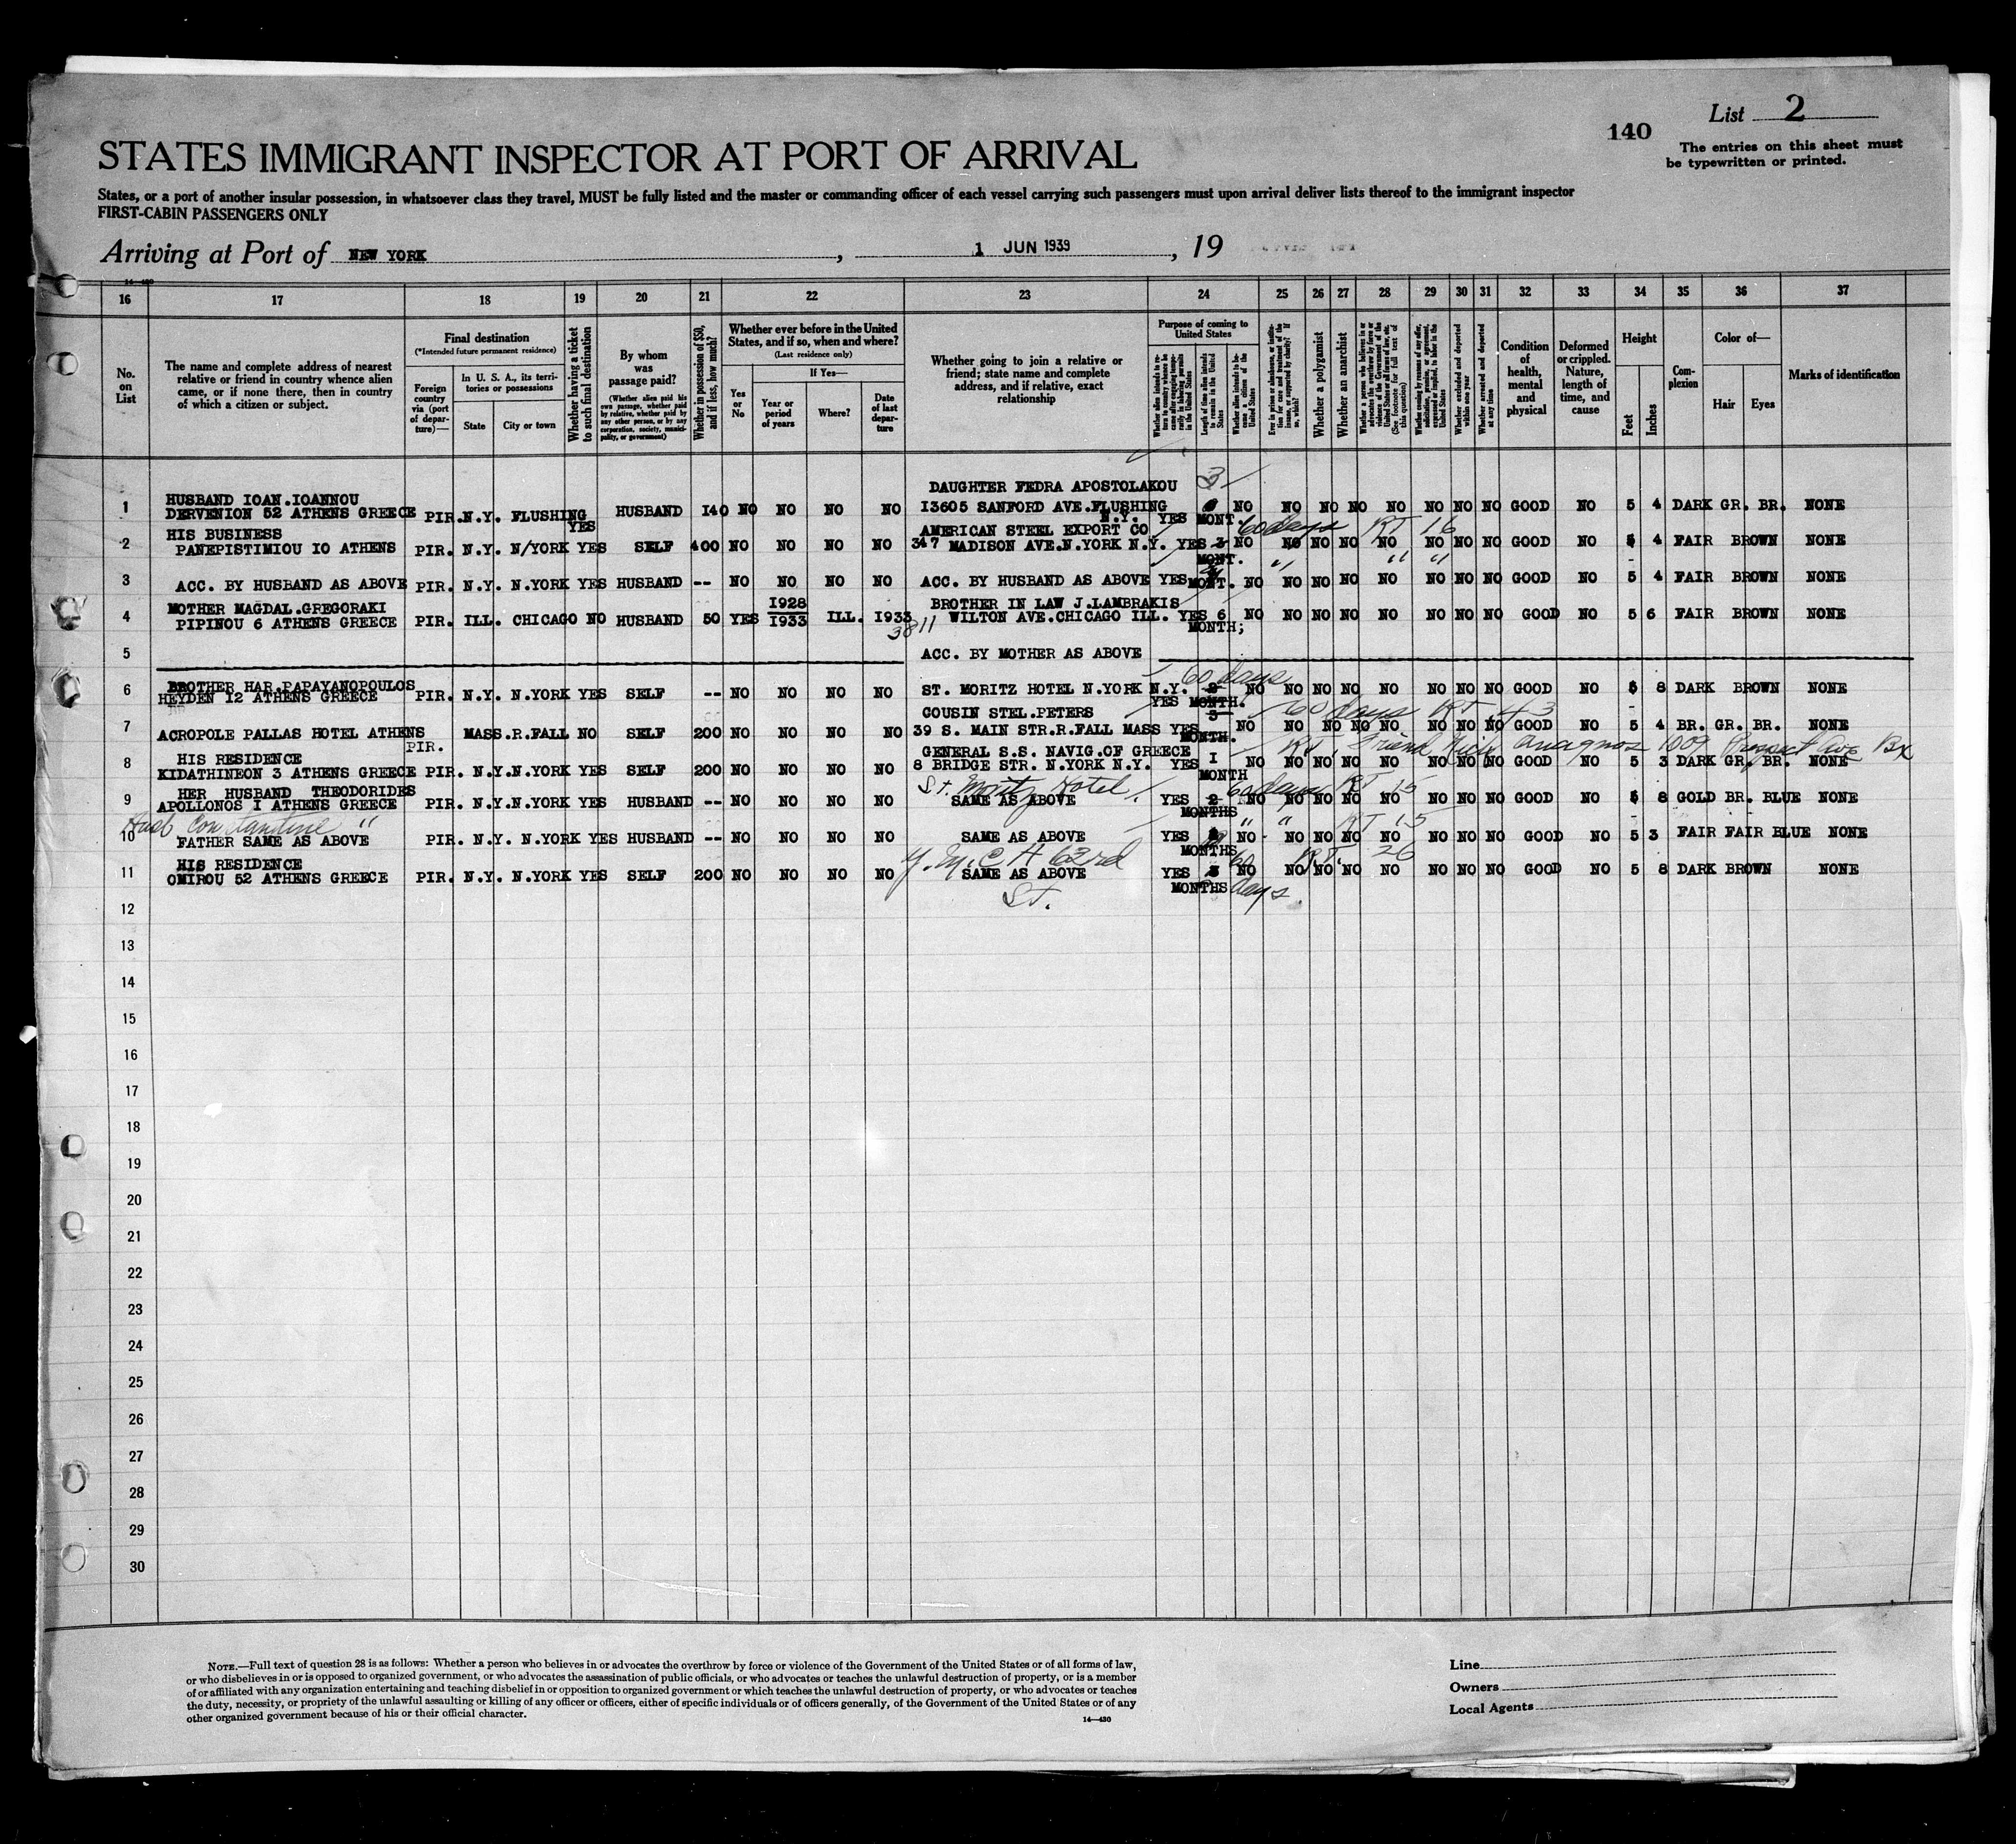 List 2
140
The entries on this sheet must
be typewritten or printed.
STATES IMMIGRANT INSPECTOR AT PORT OF ARRIVAL
States, or a port of another insular possession, in whatsoever class they travel, MUST be fully listed and the master or commanding officer of each vessel carrying such passengers must upon arrival deliver lists thereof to the immigrant inspector
FIRST-CABIN PASSENGERS ONLY
Arriving at Port of NEW YORK, 1 JUN 1939, 19
14—430
16 17 18 19 20 21 22 23 24 25 26 27 28 29 30 31 32 33 34 35 36 37
No. on List
The name and complete address of nearest relative or friend in country whence alien came, or if none there, then in country of which a citizen or subject.
Final destination
(*Intended future permanent residence)
Foreign country via (port of departure)—
In U. S. A., its territories or possessions
State
City or town
Whether having a ticket to such final destination
By whom was passage paid?
(Whether alien paid his own passage, whether paid by relative, whether paid by any other person, or by any corporation, society, municipality, or government)
Whether in possession of $50, and if less, how much?
Whether ever before in the United States, and if so, when and where?
(Last residence only)
Yes or No
If Yes—
Year or period of years
Where?
Date of last departure
Whether going to join a relative or friend; state name and complete address, and if relative, exact relationship
Purpose of coming to United States
Length of time alien intends to remain in the United States
Whether alien intends to become a citizen of the United States
Whether a polygamist
Whether an anarchist
(See footnote for full text of this question)
Whether excluded and deported within one year
Whether arrested and deported at any time
Condition of health, mental and physical
Deformed or crippled. Nature, length of time, and cause
Height
Feet
Inches
Complexion
Color of—
Hair
Eyes
Marks of identification
DAUGHTER FEDRA APOSTOLAKOU 3
HUSBAND IOAN.IOANNOU
1 DERVENION 52 ATHENS GREECE PIR. N.Y. FLUSHING YES HUSBAND 140 NO NO NO NO 13605 SANFORD AVE.FLUSHING N.Y. YES MONT. NO NO NO NO NO NO NO NO GOOD NO 5 4 DARK GR. BR. NONE
HIS BUSINESS AMERICAN STEEL EXPORT CO 60 days RT 16
2 PANEPISTIMIOU 10 ATHENS PIR. N.Y. N/YORK YES SELF 400 NO NO NO NO 347 MADISON AVE.N.YORK N.Y. YES 3 MONT. NO NO NO NO NO NO NO NO GOOD NO 5 4 FAIR BROWN NONE
" " "
3 ACC. BY HUSBAND AS ABOVE PIR. N.Y. N.YORK YES HUSBAND -- NO NO NO NO ACC. BY HUSBAND AS ABOVE YES MONT. NO NO NO NO NO NO NO NO GOOD NO 5 4 FAIR BROWN NONE
MOTHER MAGDAL.GREGORAKI 1928 BROTHER IN LAW J.LAMBRAKIS
4 PIPINOU 6 ATHENS GREECE PIR. ILL. CHICAGO NO HUSBAND 50 YES 1933 ILL. 1933 3811 WILTON AVE.CHICAGO ILL. YES 6 MONTH; NO NO NO NO NO NO NO NO GOOD NO 5 6 FAIR BROWN NONE
5 ACC. BY MOTHER AS ABOVE
BROTHER HAR.PAPAYANOPOULOS 60 days
6 HEYDEN 12 ATHENS GREECE PIR. N.Y. N.YORK YES SELF -- NO NO NO NO ST. MORITZ HOTEL N.YORK N.Y. YES 2 MONTH. NO NO NO NO NO NO NO NO GOOD NO 5 8 DARK BROWN NONE
COUSIN STEL.PETERS 60 days RT 43
7 ACROPOLE PALLAS HOTEL ATHENS PIR. MASS.R.FALL NO SELF 200 NO NO NO NO 39 S. MAIN STR.R.FALL MASS YES 3 MONTH. NO NO NO NO NO NO NO NO GOOD NO 5 4 BR. GR. BR. NONE
HIS RESIDENCE GENERAL S.S. NAVIG.OF GREECE RT, Friend Nich Anagnos 1009 Prospect Ave Bx
8 KIDATHINEON 3 ATHENS GREECE PIR. N.Y. N.YORK YES SELF 200 NO NO NO NO 8 BRIDGE STR. N.YORK N.Y. YES 1 MONTH NO NO NO NO NO NO NO NO GOOD NO 5 3 DARK GR. BR. NONE
HER HUSBAND THEODORIDES St. Moritz Hotel 60 days RT 15
9 APOLLONOS 1 ATHENS GREECE PIR. N.Y. N.YORK YES HUSBAND -- NO NO NO NO SAME AS ABOVE YES 2 MONTHS NO NO NO NO NO NO NO NO GOOD NO 5 8 GOLD BR. BLUE NONE
Husb Constantine " " " RT 15
10 FATHER SAME AS ABOVE PIR. N.Y. N.YORK YES HUSBAND -- NO NO NO NO SAME AS ABOVE YES MONTHS NO NO NO NO NO NO NO NO GOOD NO 5 3 FAIR FAIR BLUE NONE
HIS RESIDENCE Y.M.C.A 63rd St. 60 days RT. 26
11 OMIROU 52 ATHENS GREECE PIR. N.Y. N.YORK YES SELF 200 NO NO NO NO SAME AS ABOVE YES 3 MONTHS NO NO NO NO NO NO NO NO GOOD NO 5 8 DARK BROWN NONE
12
13
14
15
16
17
18
19
20
21
22
23
24
25
26
27
28
29
30
NOTE.—Full text of question 28 is as follows: Whether a person who believes in or advocates the overthrow by force or violence of the Government of the United States or of all forms of law,
or who disbelieves in or is opposed to organized government, or who advocates the assassination of public officials, or who advocates or teaches the unlawful destruction of property, or is a member
of or affiliated with any organization entertaining and teaching disbelief in or opposition to organized government or which teaches the unlawful destruction of property, or who advocates or teaches
the duty, necessity, or propriety of the unlawful assaulting or killing of any officer or officers, either of specific individuals or of officers generally, of the Government of the United States or of any
other organized government because of his or their official character.
14—430
Line
Owners
Local Agents